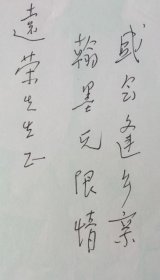 盛会逢乡亲
翰墨无限情
遠荣先生正